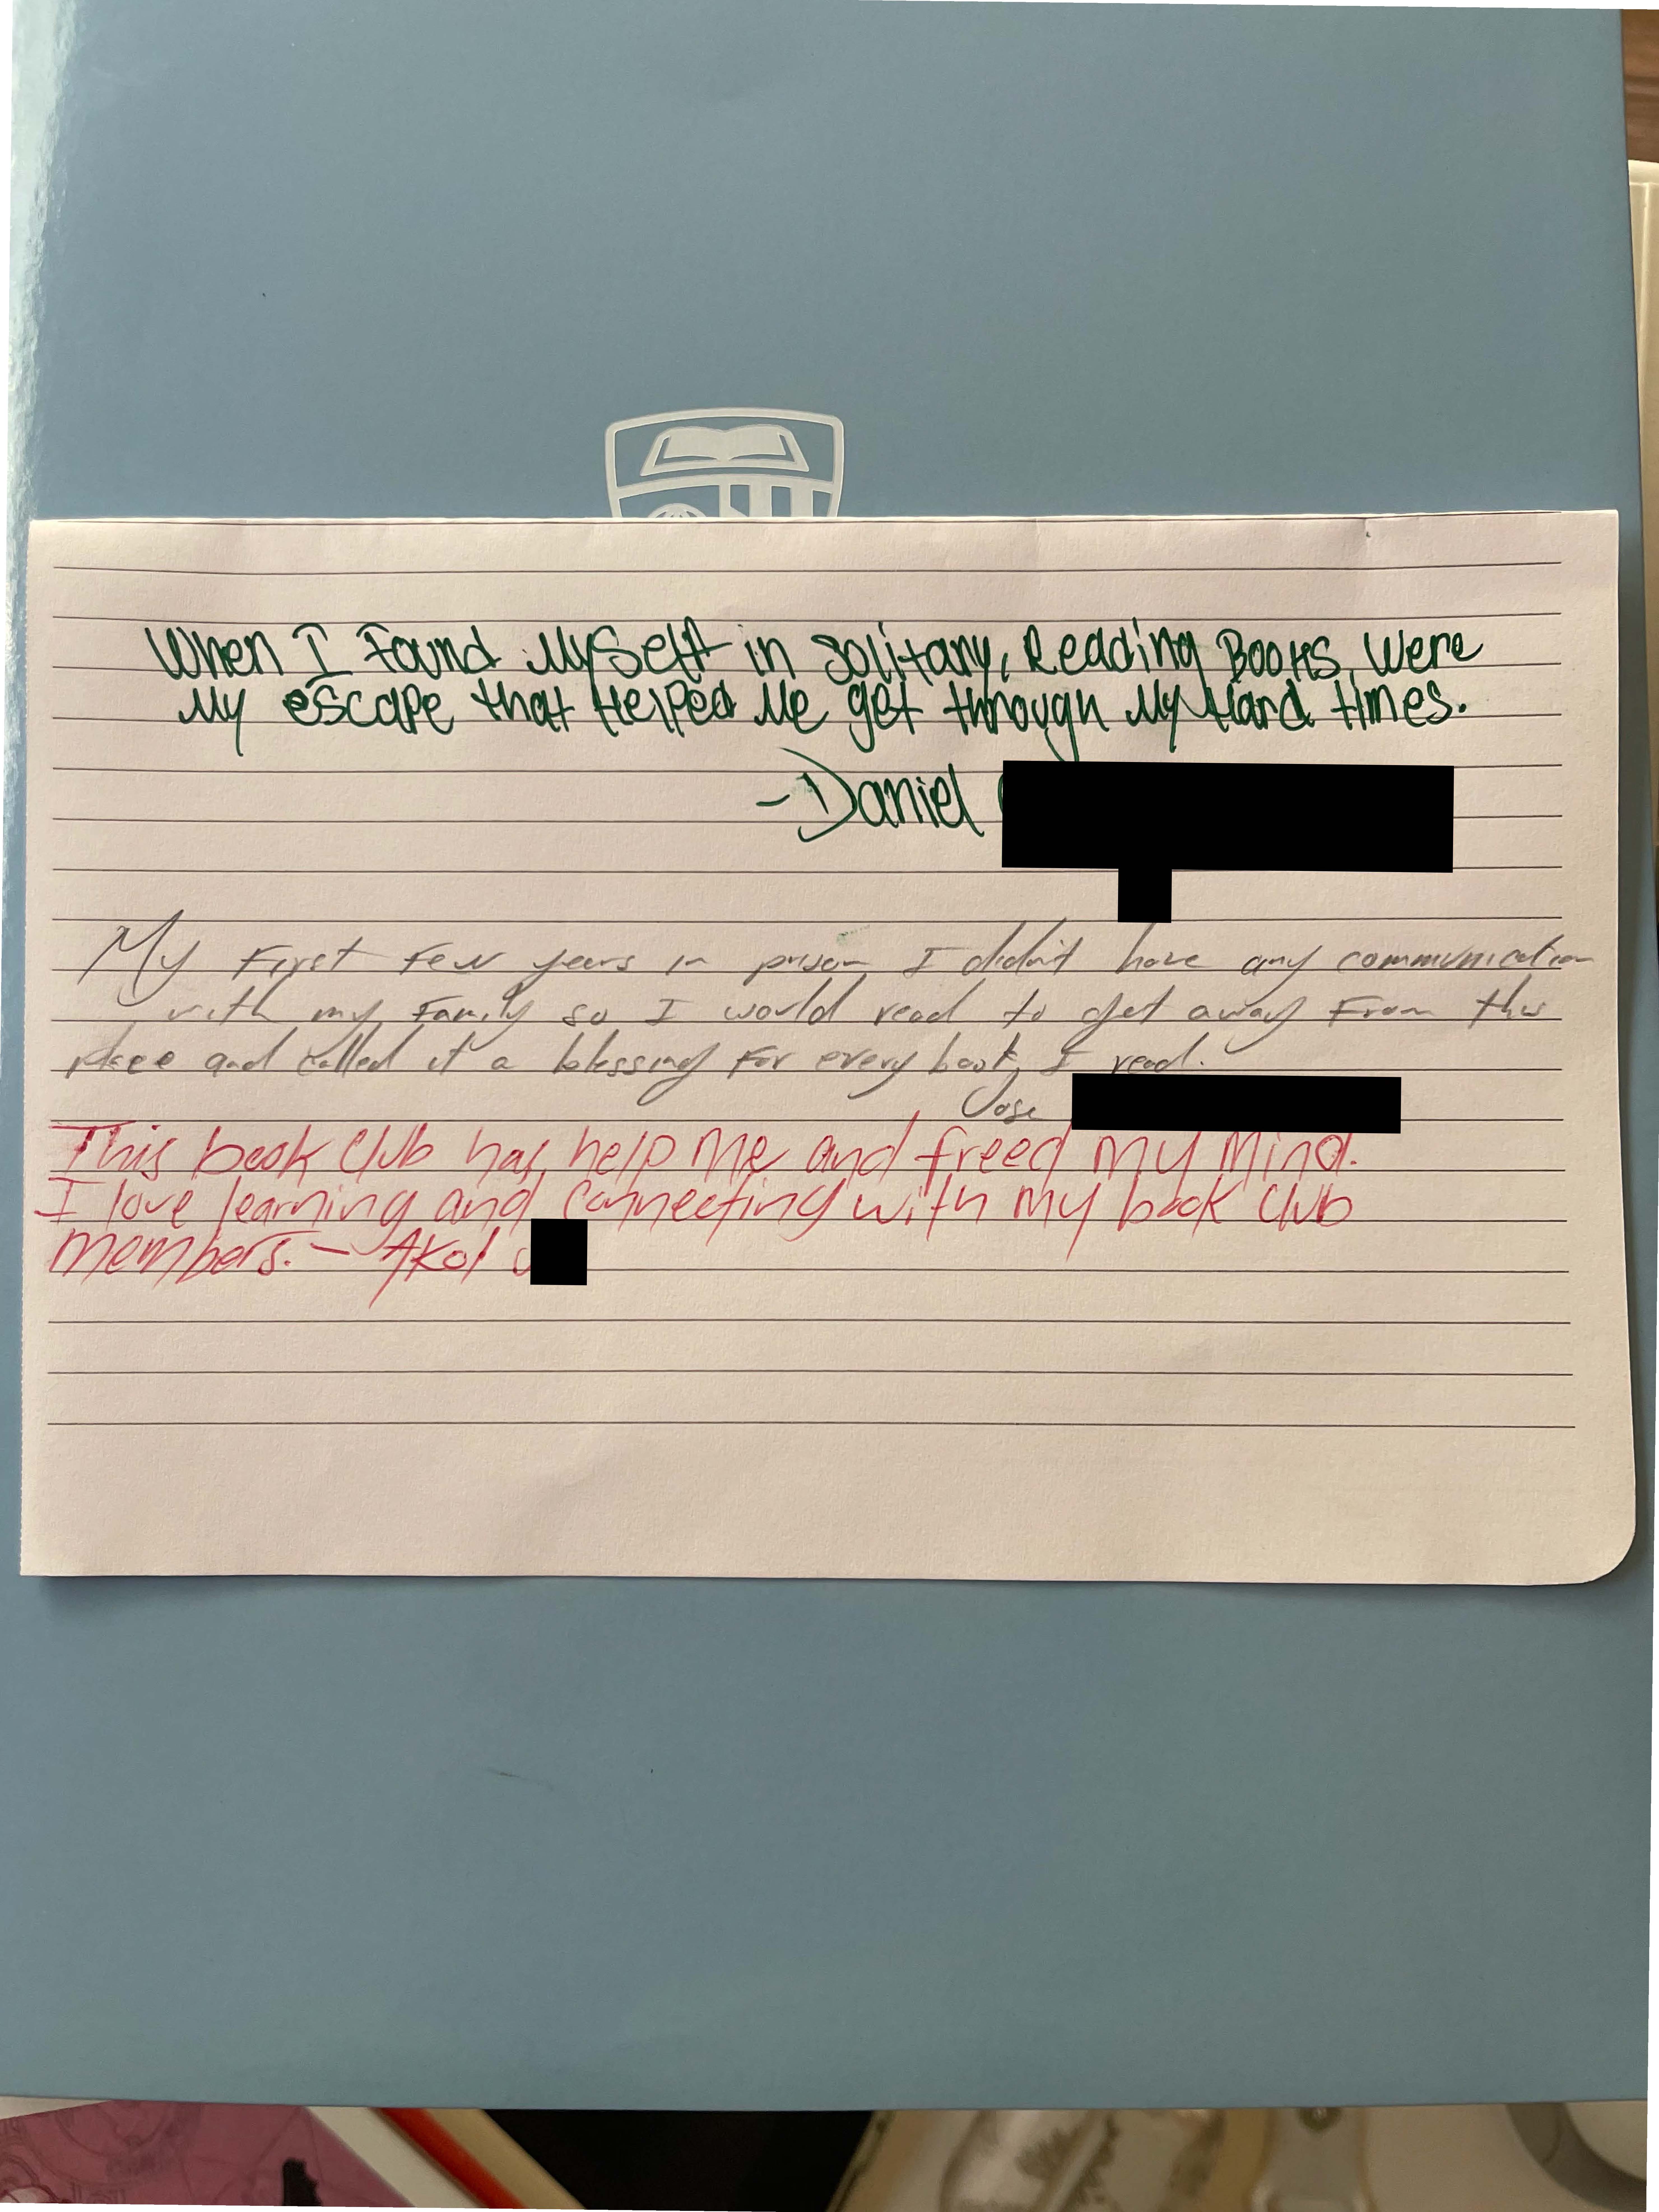 When I Found Myself in solitary, Reading Books Were
My escape that Helped Me get through My Hard times.
-Daniel
My First Few years in prison I didn't have any communication
with my Family so I would read to get away From this
place and called it a blessing For every book I read.
Jose
This book Club has help me and freed my mind.
I love learning and connecting with my book Club
members. - Akol